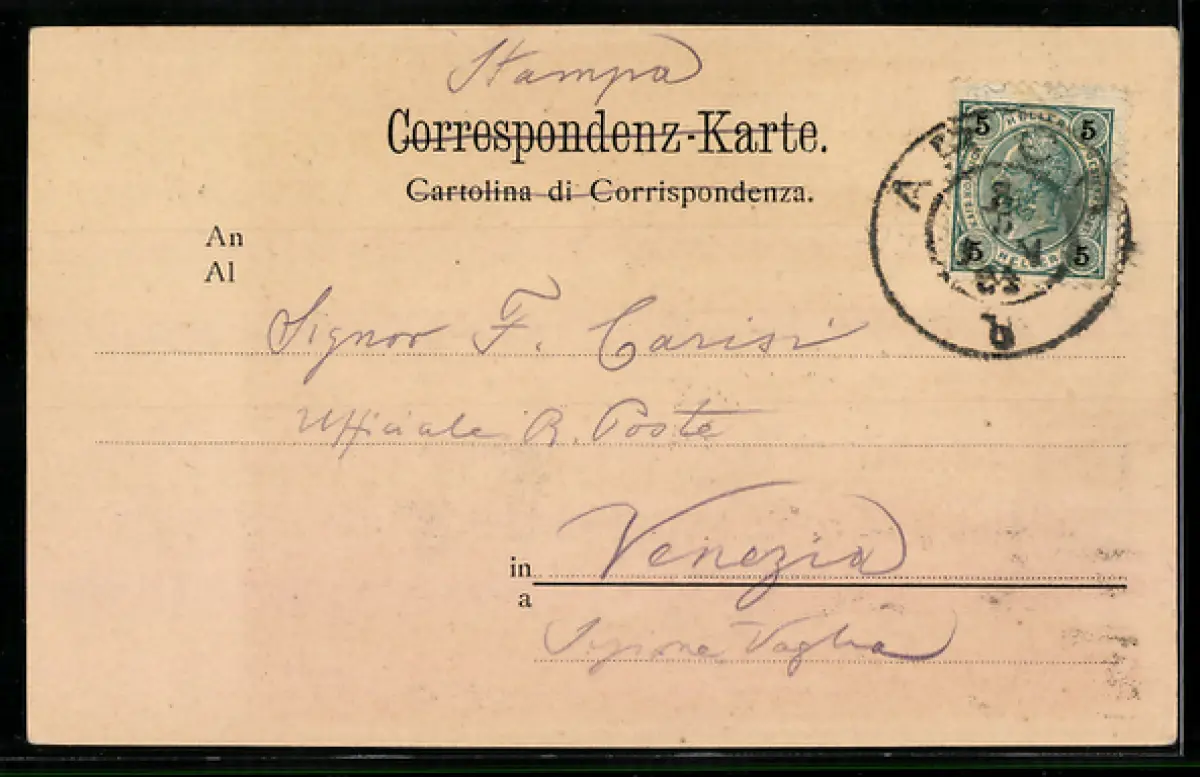 Stampa
Correspondenz-Karte.
Cartolina di Corrispondenza.
5 HELLER 5
5 HELLER 5
A
b
An
Al
Signor F. Carisi
Ufficiale R. Poste
in Venezia
a
Vaglia